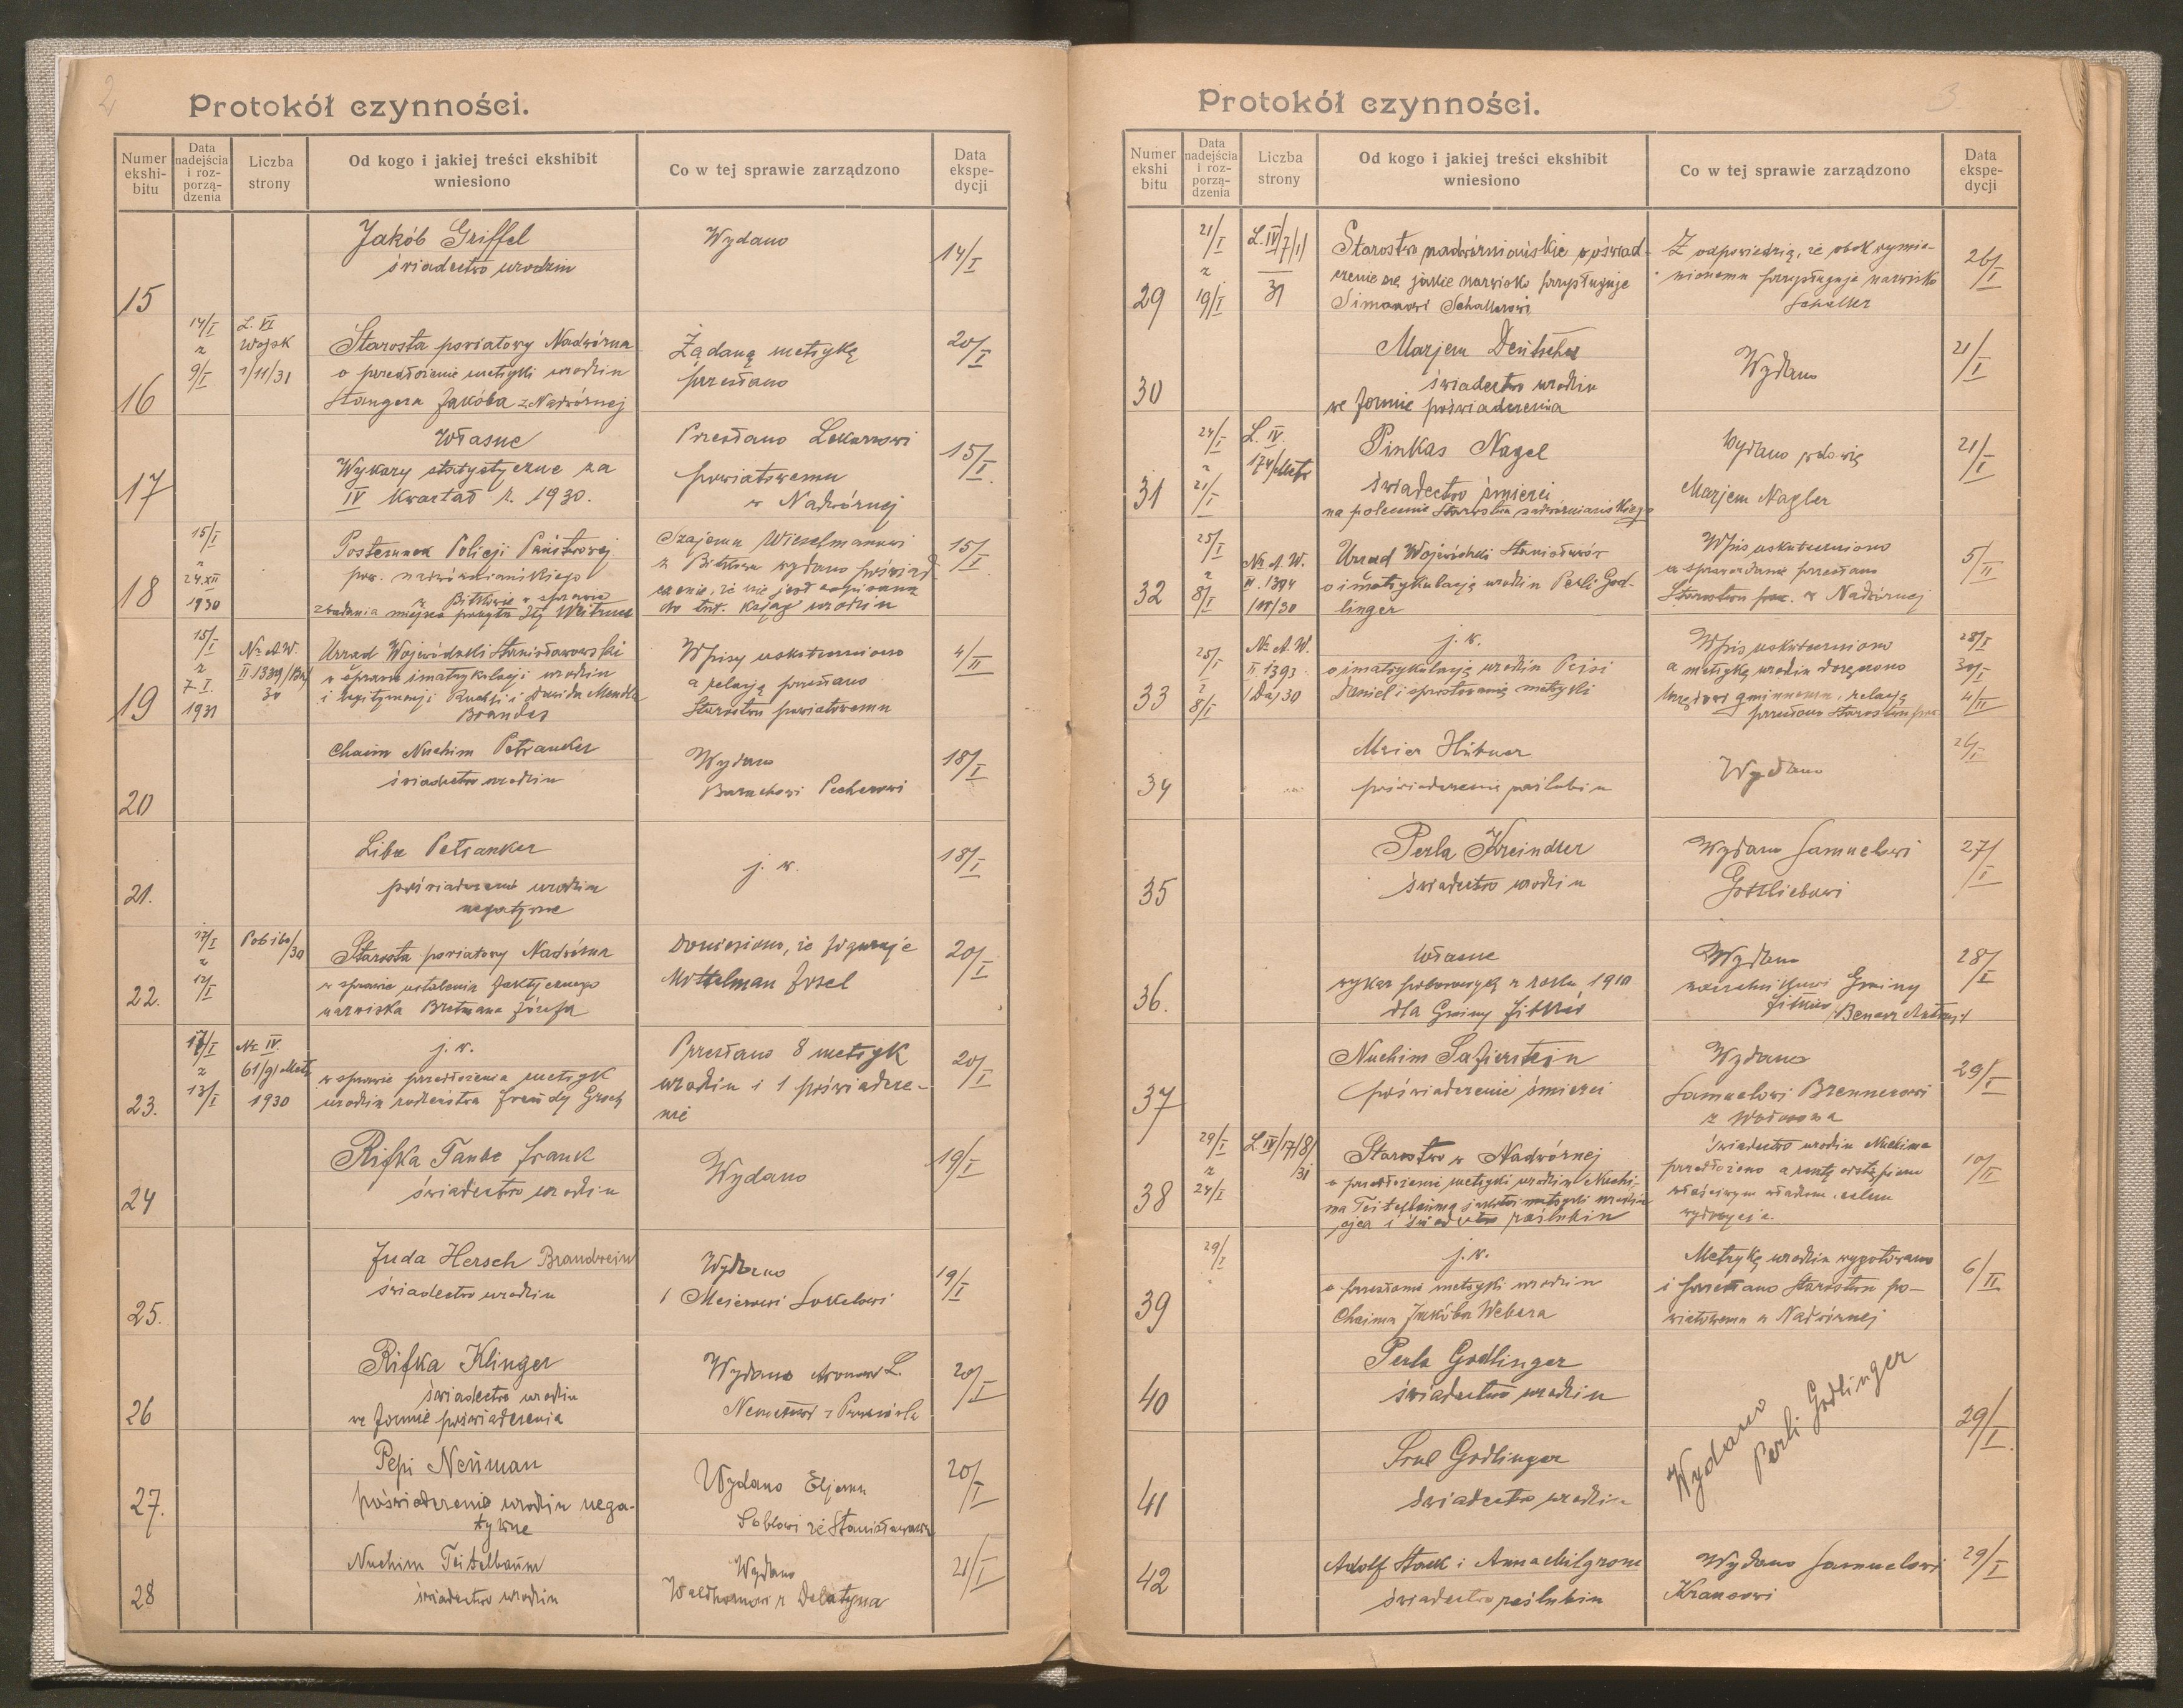 2
Protokół czynności.
Numer ekshi-bitu
Data nadejścia i roz-porzą-dzenia
Liczba strony
Od kogo i jakiej treści ekshibit wniesiono
Co w tej sprawie zarządzono
Data ekspe-dycji
15
Jakób Griffel
świadectwo urodzin
Wydano
14/I
16
14/I
z
9/I
L. VI
Wojsk
1/11/31
Starosta powiatowy Nadwórna
o przedłożenie metryki urodzin
Stangera Jakóba z Nadwórnej
Żądaną metrykę
przesłano
20/I
17
Własne
Wykazy statystyczne za
IV Kwartał r. 1930.
Przesłano Lekarzowi
powiatowemu
w Nadwórnej
15/I
18
15/I
z
24.XII
1930
Posterunek Policji Państwowej
pow. nadwórniańskiego
w Bitkowie w sprawie
zbadania miejsca pobytu
Szajemu Wieselmanowi
z Bitkowa wydano poświad
czenie, że nie jest zapisana
do tut. ksiąg urodzin
15/I
19
15/I
z
7 I.
1931
Nr. A.W.
II 1339/
30
Urząd Wojewódzki Stanisławowski
w sprawie imatrykulacji urodzin
i legitymacji Ruchli i Dawida Mendla
Brandes
Wpisy uskuteczniono
a relację przesłano
Starostwu powiatowemu
4/II
20
Chaim Nuchim Petranker
świadectwo urodzin
Wydano
Baruchowi Pecherowi
18/I
21.
Liba Petranker
poświadczenie urodzin
negatywne
j. w.
18/I
22.
17/I
z
12/I
Pob 160/30
Starosta powiatowy Nadwórna
w sprawie ustalenia faktycznego
nazwiska Bretmana Józefa
Doniesiono, że figuruje
Mottelman Josel
20/I
23.
17/I
z
13/I
Nr. IV.
61/9/Metr
1930
j. w.
w sprawie przedłożenia metryk
urodzin rodzeństwa Freudy Grosch
Przesłano 8 metryk
urodzin i 1 poświadcze-
nie
20/I
24
Rifka Taube Frank
świadectwo urodzin
Wydano
19/I
25.
Juda Hersch Brandwein
świadectwo urodzin
Wydano
Meierowi Sokalowi
19/I
26
Rifka Klinger
świadectwo urodzin
we formie poświadczenia
Wydano Aronowi L.
20/I
27.
Pepi Neüman
poświadczenie urodzin nega-
tywne
Wydano Eljemu
Soblowi ze Stanisławowa
20/I
28
Nuchim Teitelbaüm
świadectwo urodzin
Wydano
Waldmanowi z Delatyna
21/I
3
Protokół czynności.
Numer ekshi bitu
Data nadejścia i roz-porzą-dzenia
Liczba strony
Od kogo i jakiej treści ekshibit wniesiono
Co w tej sprawie zarządzono
Data ekspe-dycji
29
21/I
z
19/I
L. IV/7/1/
31
Starostwo nadwórniańskie o poświad-
czenie się jakie nazwisko przysługuje
Simonowi Schallerowi
Z odpowiedzią, że obok wymie-
nionemu przysługuje nazwisko
Schaller
26/I
30
Marjem Deütscher
świadectwo urodzin
we formie poświadczenia
Wydano
21/I
31
24/I
z
21/I
L. IV.
174/Metr
Pinkas Nagel
świadectwo śmierci
na polecenie Starostwa nadwórniańskiego
Wydano wdowię
Marjem Nagler
21/I
32
25/I
z
8/I
Nr. A. W.
II. 1394
/30
Urząd Wojewódzki Stanisławów
o imatrykulację urodzin Perli God-
linger
Wpis uskuteczniono
a sprawozdanie przesłano
Starostwu pow. w Nadwórnej
5/II
33
25/I
z
8/I
Nr. A. W.
II 1393
/Da/30
j. w.
o imatrykulację urodzin Peisi
Daniel i sprostowanie metryki
Wpis uskuteczniono
a metrykę urodzin doręczono
Urzędowi gminnemu, relację
przesłano Starostwu pow.
28/I
30/I
4/II
34
Meier Hübner
poświadczenie zaślubin
Wydano
26/I
35
Perla Kreindler
świadectwo urodzin
Wydano Samuelowi
Gottliebowi
27/I
36.
Własne
wykaz poborowych z roku 1910
dla Gminy
Wydano
naczelnikowi Gminy
28/I
37
Nuchim Safierstein
poświadczenie śmierci
Wydano
Samuelowi Brennerowi
29/I
38
29/I
z
24/I
L IV/17/8/
31
Starostwo w Nadwórnej
o przedłożenie metryki urodzin Nuchi-
ma Teitelbauma metryki urodzin
ojca i świadectwo zaślubin
Świadectwo urodzin Nuchima
przedłożono a resztę odstąpiono
właściwym władzom celem
wydania.
10/II
39
29/I
j. w.
o przesłanie metryki urodzin
Chaima Jakóba Webera
Metrykę urodzin wygotowano
i przesłano Starostwu po-
wiatowemu w Nadwórnej
6/II
40
Perla Godlinger
świadectwo urodzin
Wydano
Perli Godlinger
29/I
41
Srul Godlinger
świadectwo urodzin
42
Adolf Stack i Anna Milgrom
świadectwo zaślubin
Wydano Samuelowi
Kranzowi
29/I